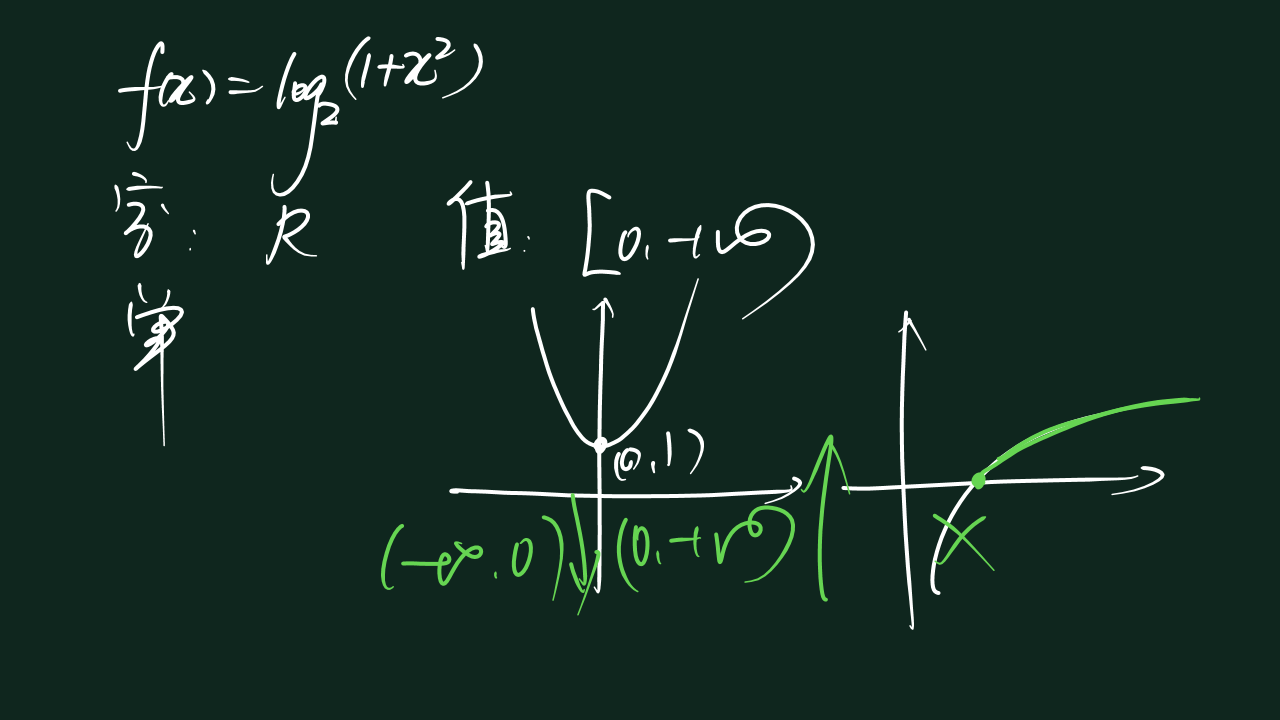 f(x)=log₂(1+x²)
定: R 值: [0,+∞)
单
(0,1)
(-∞,0) (0,+∞)